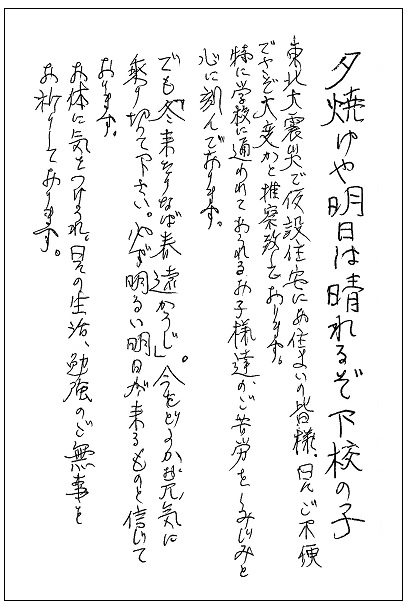 夕焼けや明日は晴れるぞ下校の子
東北大震災で仮設住宅にお住まいの皆様、日々ご不便
でさぞ大変かと推察致しております。
特に学校に通われておられるお子様達がご苦労をしみじみと
心に刻んでおります。
でも「冬来たりなば春遠からじ」。今をどうかお元気に
乗り切って下さい。必ず明るい明日が来るものと信じて
おります。
お体に気をつけられ、日々の生活、勉強のご無事を
お祈りしております。